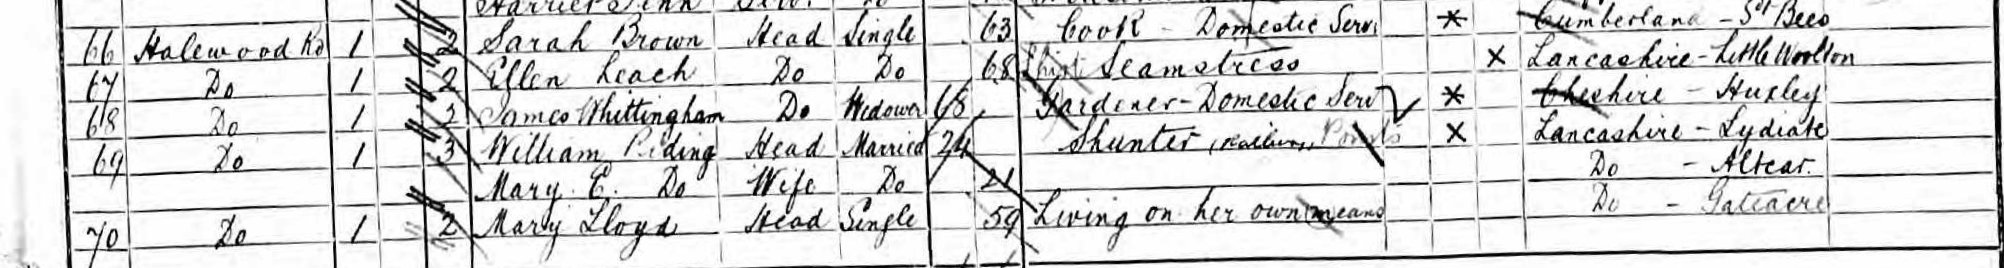 66 Halewood Rd 1 2 Sarah Brown Head Single 63 Cook - Domestic Serv. Cumberland - St Bees
67 Do 1 2 Ellen Leach Do Do 68 Shirt Seamstress X Lancashire - Little Woolton
68 Do 1 2 James Whittingham Do Widower 68 Gardener - Domestic Serv X Cheshire - Huxley
69 Do 1 3 William Riding Head Married 24 Shunter, X Lancashire - Lydiate
Mary E. Do Wife Do 21 Do - Altcar.
70 Do 1 2 Mary Lloyd Head Single 59 Living on her own means Do - Gateacre